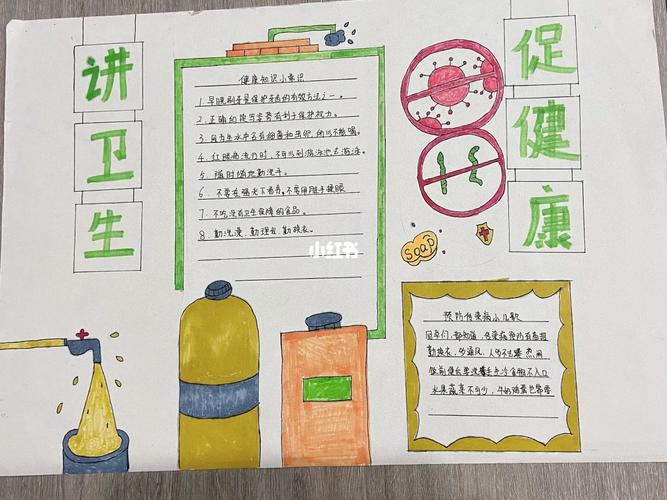 讲卫生
促健康
健康知识小常识
1. 早晚刷牙是保护牙齿的有效方法之一。
2. 正确的读写姿势有利于保护视力。
3. 因为生水中含有细菌和虫卵,所以不能喝。
4. 红眼病流行时,不可以到游泳池去游泳。
5. 随时随地勤洗手。
6. 不要在强光下看书,不宜用脏手揉眼
7. 不吃没有卫生保障的食品。
8. 勤洗澡,勤理发,勤换衣。
小红书
soap
预防传染病小儿歌
同学们,都知道,传染病预防有高招
勤换衣,多通风,人多不去凑热闹
饭前便后要洗手生冷食物不入口
水果蔬菜不可少,牛奶鸡蛋也需要